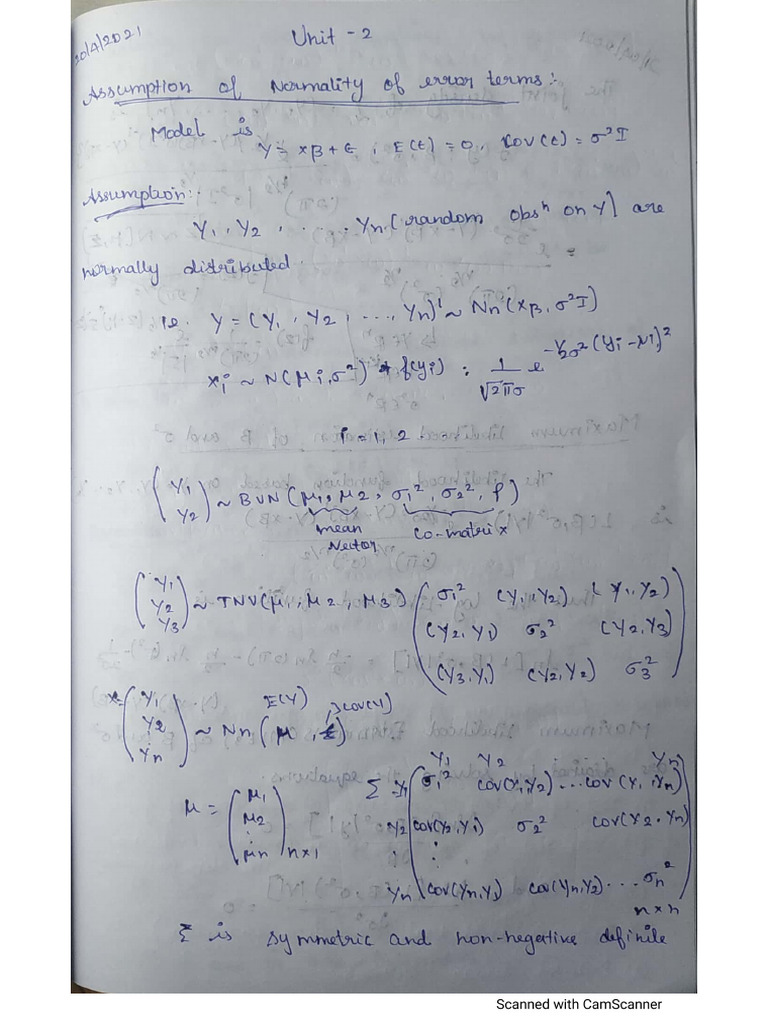 20/4/2021
Unit - 2
Assumption of Normality of error terms:
Model is
Y = xβ + ε , E(ε) = 0, Cov(ε) = σ²I
Assumption:
Y₁, Y₂ . . . . Yn (random obsⁿ on Y) are
normally distributed.
i.e. Y = (Y₁, Y₂, ..., Yn)' ~ Nn(xβ, σ²I)
xi ~ N(μi, σ²) f(yi) : 1/√2πσ e^-1/2σ² (yi - μi)²
i = 1, 2.
(Y₁ Y₂) ~ BVN (μ₁, μ₂, σ₁², σ₂², ρ)
mean vector co-matrix
(Y₁ Y₂ Y₃) ~ TNV(μ₁, μ₂, μ₃) (σ₁² (Y₁, Y₂) (Y₁, Y₂)
(Y₂, Y₁) σ₂² (Y₂, Y₃)
(Y₃, Y₁) (Y₂, Y₂) σ₃²)
E(Y) , cov(Y)
(Y₁ Y₂ : Yn) ~ Nn (μ, Σ)
Y₁ Y₂ Yn
μ = (μ₁ μ₂ : μn) n×1 Σ Y₁ (σ₁² cov(Y₁, Y₂) ... cov(Y₁, Yn)
Y₂ cov(Y₂, Y₁) σ₂² cov(Y₂, Yn)
:
Yn cov(Yn, Y₁) cov(Yn, Y₂) ... σn²)
n × n
Σ is symmetric and non-negative definite
Scanned with CamScanner